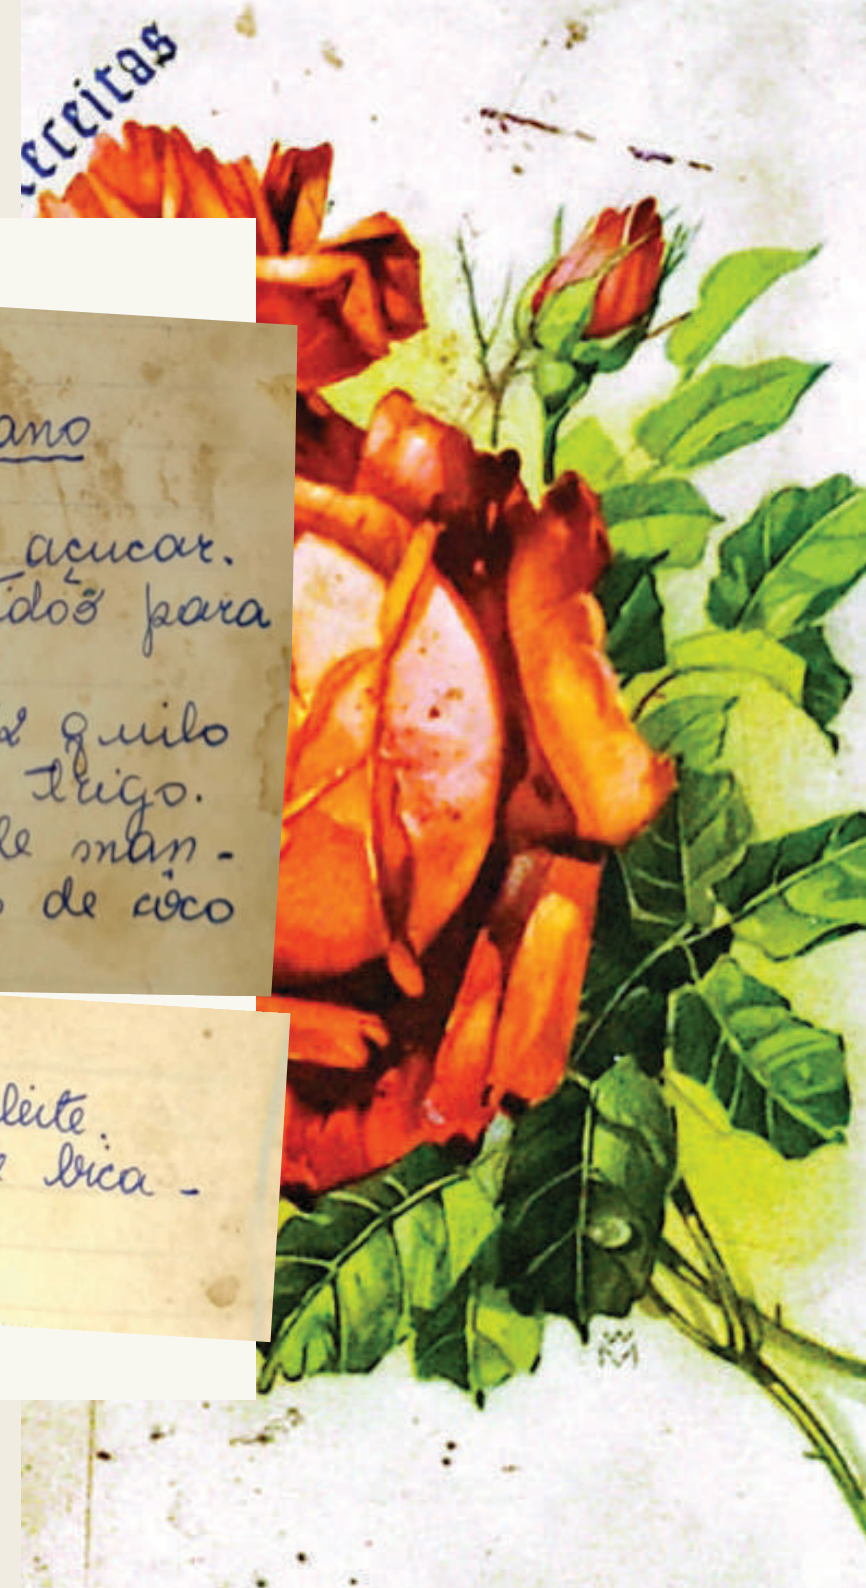 eceitas
ano
açucar.
idos para
2 quilo
trigo.
de man-
de côco
leite.
e bica-